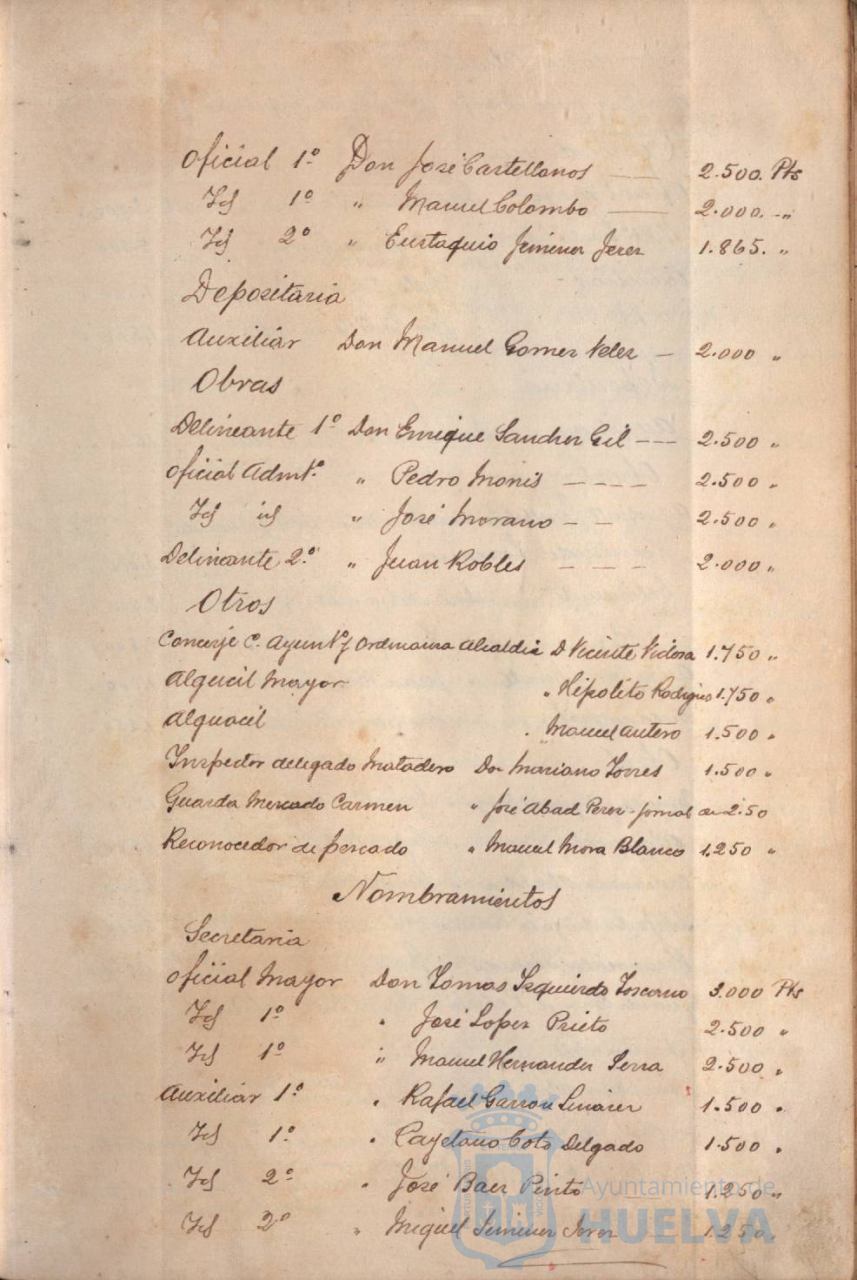 Oficial 1º Don José Castellanos — 2.500. Pts
Id 1º " Manuel Colombo — 2.000. - "
Id 2º " Eustaquio Jimenez Jerez 1.865. "
Depositaria
Auxiliar Don Manuel Gomez Velez — 2.000 "
Obras
Delineante 1º Don Enrique Sanchez Gil --- 2.500 "
Oficial Admtº " Pedro Monis ---- 2.500 "
Id id " José Morano -- 2.500 "
Delineante 2º " Juan Robles --- 2.000 "
Otros
Conserje C. Ayuntº y Ordenanza Alcaldia D Vicente Vidosa 1.750 "
Alguacil Mayor " Hipolito Rodriguez 1.750 "
Alguacil " Manuel Antero 1.500 "
Inspector delegado Matadero Don Mariano Torres 1.500 "
Guarda Mercado Carmen " José Abad Perez - jornal de 2.50
Reconocedor de pescado " Manuel Mora Blanco 1.250 "
Nombramientos
Secretaria
Oficial Mayor Don Tomas Izquierdo Toscano 3.000 Pts
Id 1º " José Lopez Prieto 2.500 "
Id 1º " Manuel Hernandez Serra 2.500 "
Auxiliar 1º " Rafael Garzon Linares 1.500 "
Id 1º " Cayetano Coto Delgado 1.500 "
Id 2º " José Baez Pinto 1.250 "
Id 2º " Miguel Jimenez Jerez 1.250.
Ayuntamiento de
HUELVA